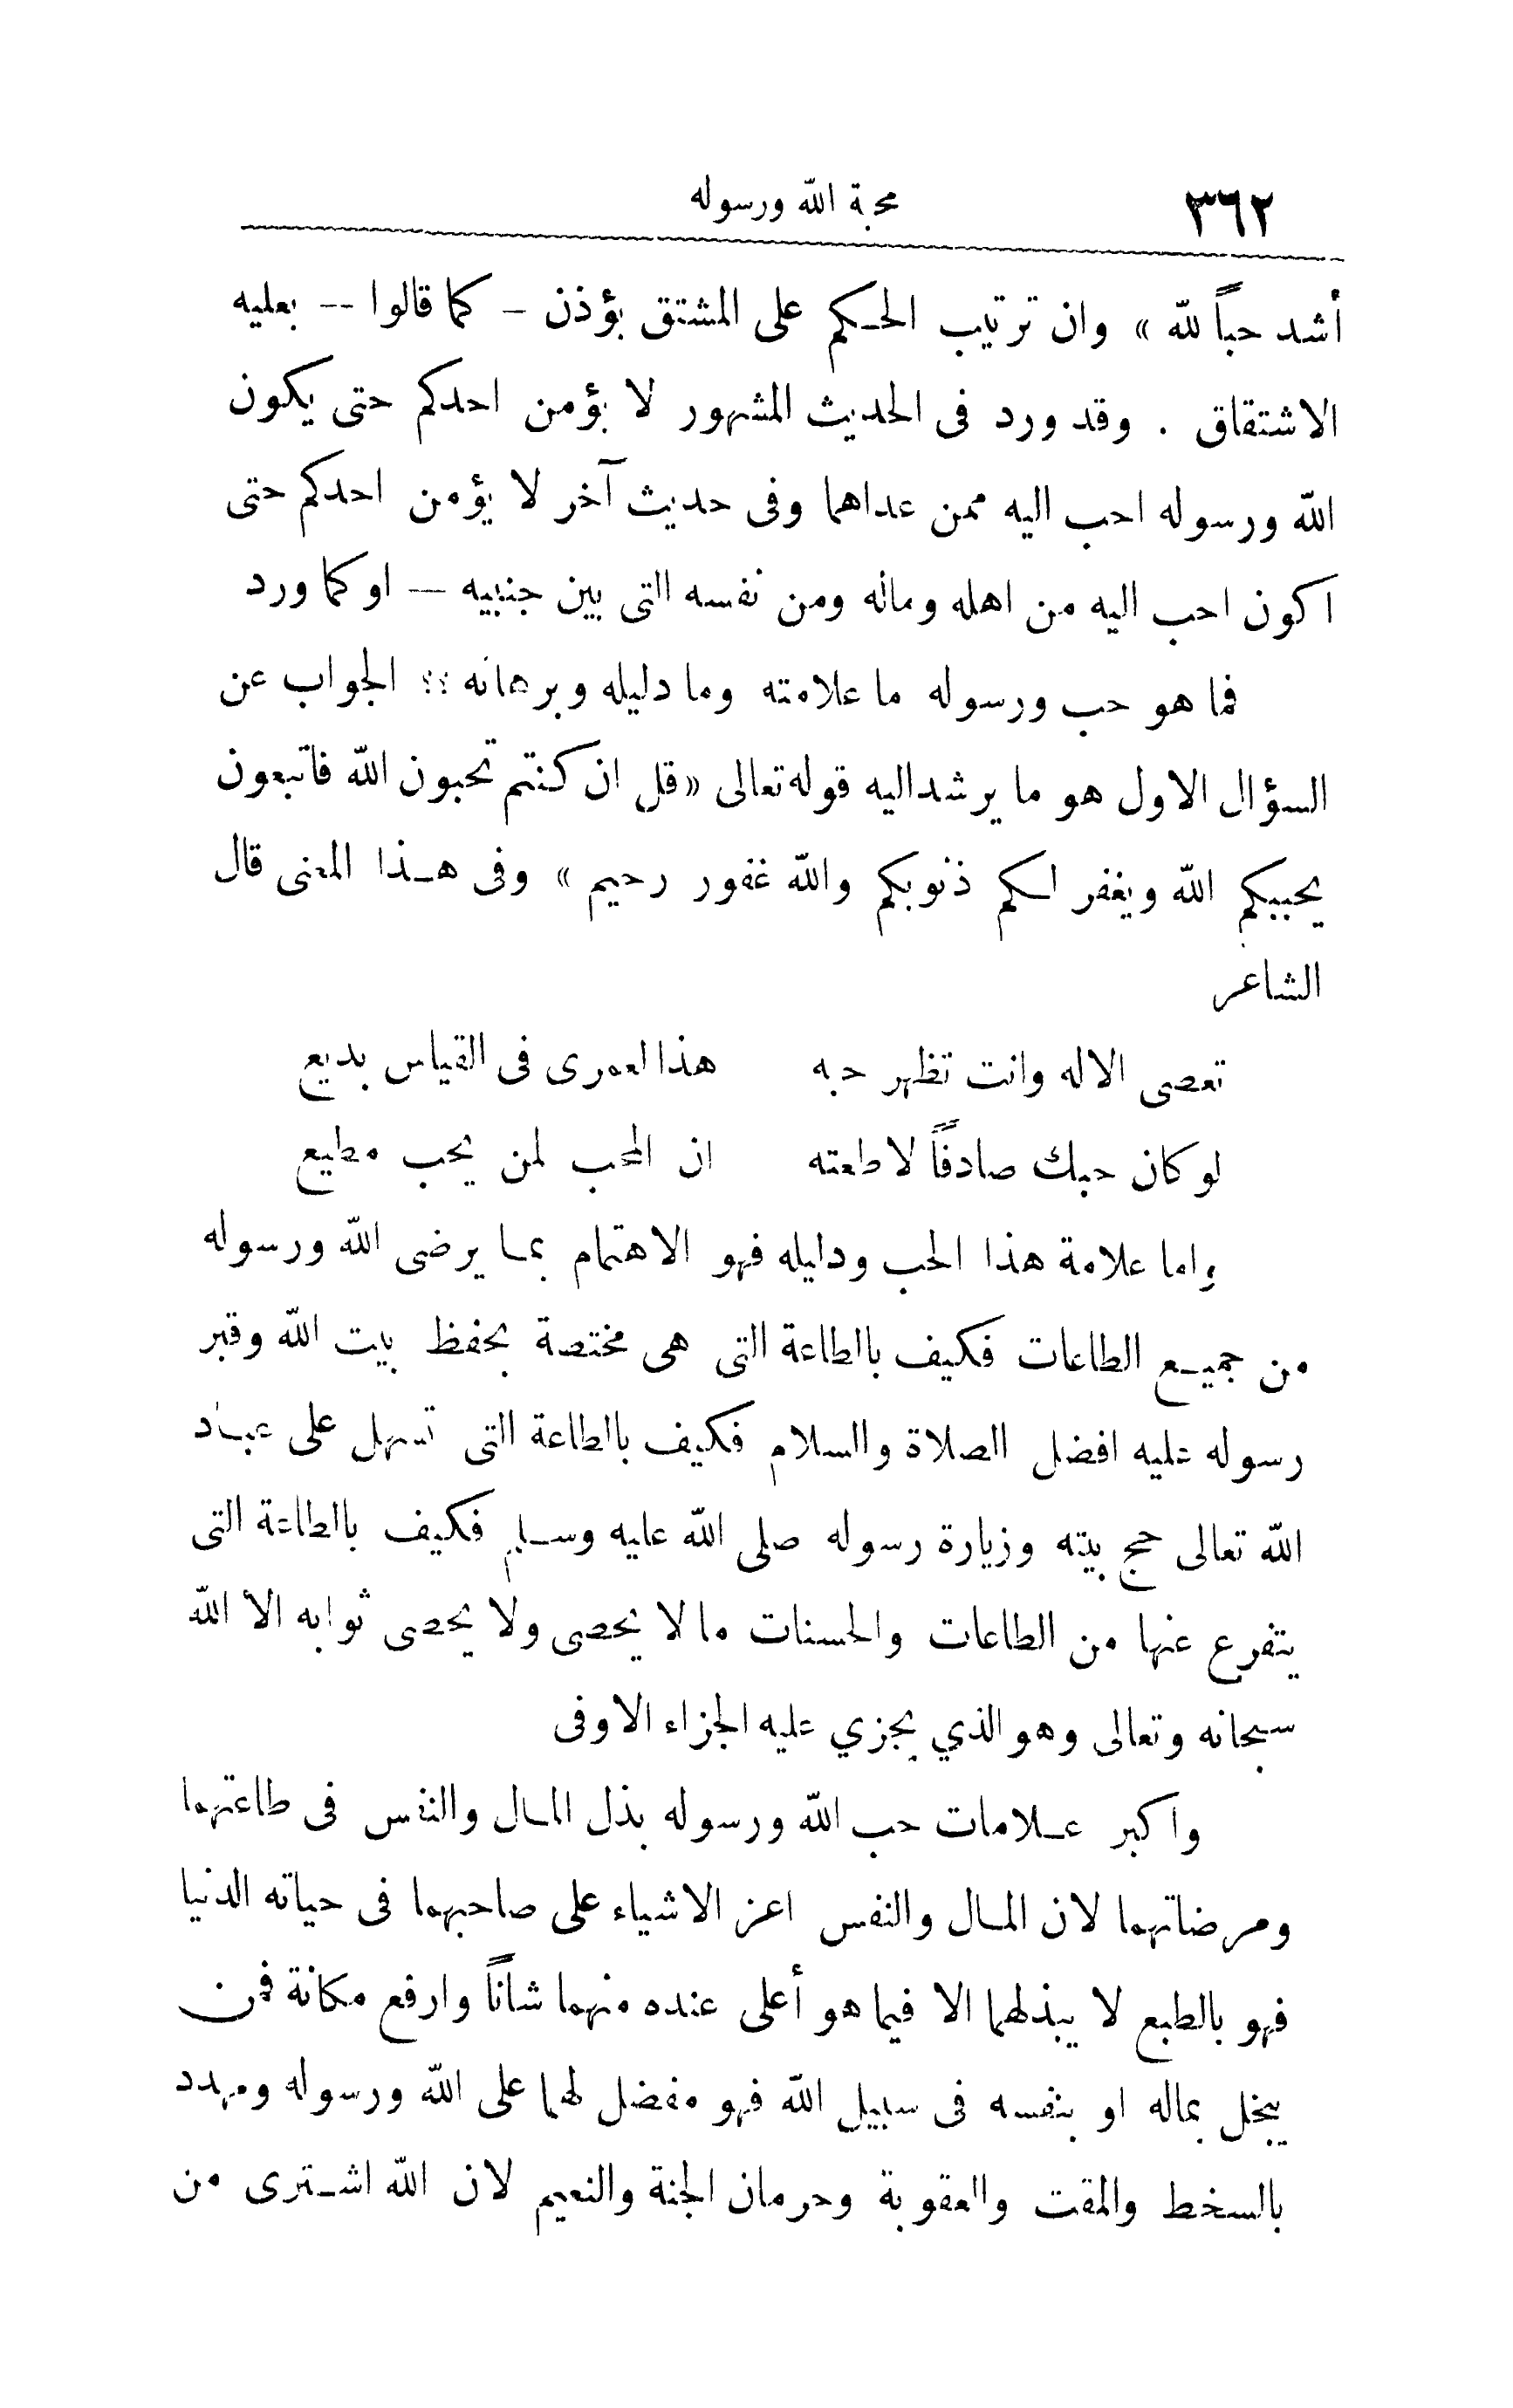 ٣٦٢
محبة الله ورسوله
أشد حباً لله » وان ترتيب الحكم على المشتق يؤذن - كما قالوا -- بعليه
الاشتقاق . وقد ورد فى الحديث المشهور لا يؤمن احدكم حتى يكون
الله ورسوله احب اليه ممن عداهما وفى حديث آخر لا يؤمن احدكم حتى
اكون احب اليه من اهله وماله ومن نفسه التى بين جنبيه — او كما ورد
فما هو حب ورسوله ما علامته وما دليله وبرهانه ؟؟ الجواب عن
السؤال الاول هو ما يرشداليه قوله تعالى « قل ان كنتم تحبون الله فاتبعون
يحببكم الله ويغفر لكم ذنوبكم والله غفور رحيم » وفى هذا المعنى قال
الشاعر
تعصى الاله وانت تظهر حبه هذا لعمرى فى القياس بديع
لو كان حبك صادقاً لاطعته ان المحب لمن يحب مطيع
واما علامة هذا الحب ودليله فهو الاهتمام بما يرضى الله ورسوله
من جميع الطاعات فكيف بالطاعة التى هى مختصة بحفظ بيت الله وقبر
رسوله عليه افضل الصلاة والسلام فكيف بالطاعة التى تسهل على عباد
الله تعالى حج بيته وزيارة رسوله صلى الله عليه وسلم فكيف بالطاعة التى
يتفرع عنها من الطاعات والحسنات ما لا يحصى ولا يحصى ثوابه الا الله
سبحانه وتعالى وهو الذي يجزي عليه الجزاء الاوفى
واكبر علامات حب الله ورسوله بذل المال والنفس فى طاعتهما
ومرضاتهما لان المال والنفس اعز الاشياء على صاحبهما فى حياته الدنيا
فهو بالطبع لا يبذلهما الا فيما هو أعلى عنده منهما شاناً وارفع مكانة فمن
يبخل بماله او بنفسه فى سبيل الله فهو مفضل لهما على الله ورسوله ومهدد
بالسخط والمقت والعقوبة وحرمان الجنة والنعيم لان الله اشترى من